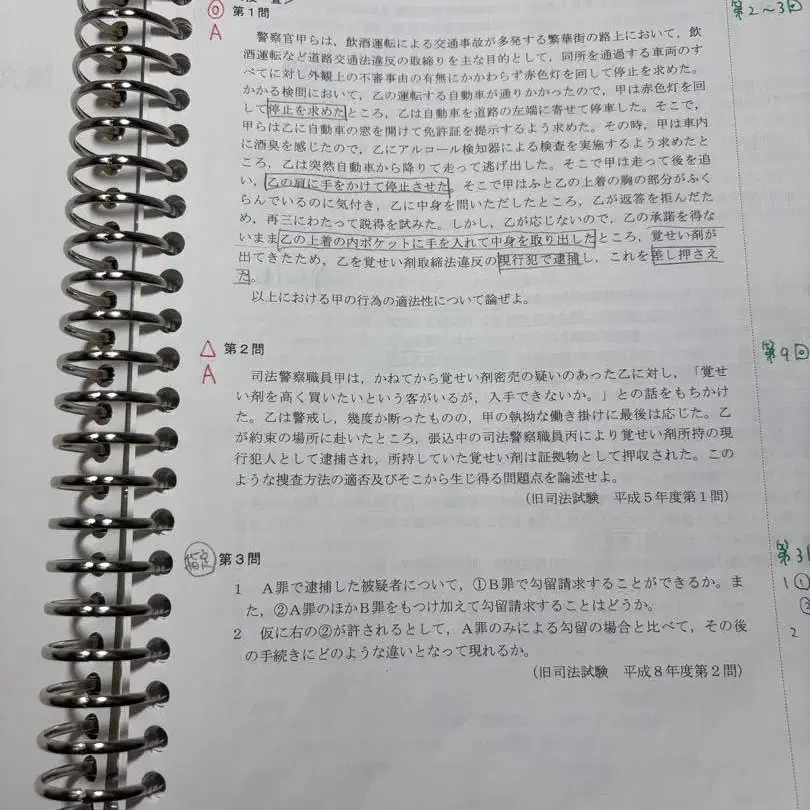 第1問
◎
A
第2～3回
警察官甲らは，飲酒運転による交通事故が多発する繁華街の路上において，飲
酒運転など道路交通法違反の取締りを主な目的として，同所を通過する車両のす
べてに対し外観上の不審事由の有無にかかわらず赤色灯を回して停止を求めた。
かかる検問において，乙の運転する自動車が通りかかったので，甲は赤色灯を回
して停止を求めたところ，乙は自動車を道路の左端に寄せて停車した。そこで，
甲らは乙に自動車の窓を開けて免許証を提示するよう求めた。その時，甲は車内
に酒臭を感じたので，乙にアルコール検知器による検査を実施するよう求めたと
ころ，乙は突然自動車から降りて走って逃げ出した。そこで甲は走って後を追
い，乙の肩に手をかけて停止させた。そこで甲はふと乙の上着の胸の部分がふく
らんでいるのに気付き，乙に中身を問いただしたところ，乙が返答を拒んだた
め，再三にわたって説得を試みた。しかし，乙が応じないので，乙の承諾を得な
いまま乙の上着の内ポケットに手を入れて中身を取り出したところ，覚せい剤が
出てきたため，乙を覚せい剤取締法違反の現行犯で逮捕し，これを差し押さえ
た。
以上における甲の行為の適法性について論ぜよ。
△
第2問
A
第9回
司法警察職員甲は，かねてから覚せい剤密売の疑いのあった乙に対し，「覚せ
い剤を高く買いたいという客がいるが，入手できないか。」との話をもちかけ
た。乙は警戒し，幾度か断ったものの，甲の執拗な働き掛けに最後は応じた。乙
が約束の場所に赴いたところ，張込中の司法警察職員丙により覚せい剤所持の現
行犯人として逮捕され，所持していた覚せい剤は証拠物として押収された。この
ような捜査方法の適否及びそこから生じ得る問題点を論述せよ。
（旧司法試験　平成5年度第1問）
指定
第3問
第3
1　A罪で逮捕した被疑者について，①B罪で勾留請求することができるか。ま
た，②A罪のほかB罪をもつけ加えて勾留請求することはどうか。
2　仮に右の②が許されるとして，A罪のみによる勾留の場合と比べて，その後
の手続きにどのような違いとなって現れるか。
（旧司法試験　平成8年度第2問）
1 ①
2